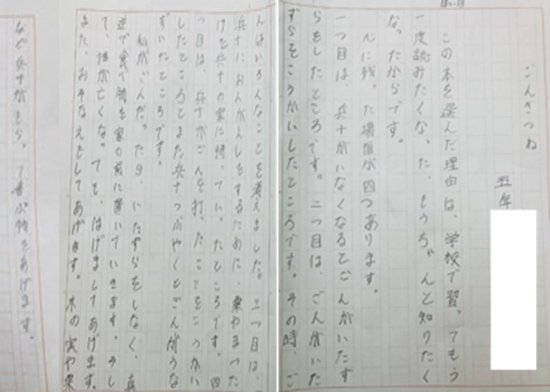 ごんぎつね
五年
この本を選んだ理由は、学校で習ってもう
一度読みたくなった、もうちゃんと知りたく
なったからです。
心に残った場面が四つあります。
一つ目は、兵十がいなくなるとごんがいたず
らをしたところです。二つ目は、ごんがいた
ずらをこうかいしたところです。その時、ご
んはいろんなことを考えました。三つ目は
兵十におんがえしをするために、栗やまつた
けを兵十の家に持っていったところです。四
つ目は、兵十がごんを打ったことをこうかい
したところとまた兵十つぶやくとごんがうな
ずいたところです。
私がごんだったら、いたずらをしなく、
で食べ物を家の前に置いていきます。そし
て、母が亡くなっても、はげましてあげます。
また、おそなえもしてあげます。木の実や栗
なぜ兵十が
物をあげます。